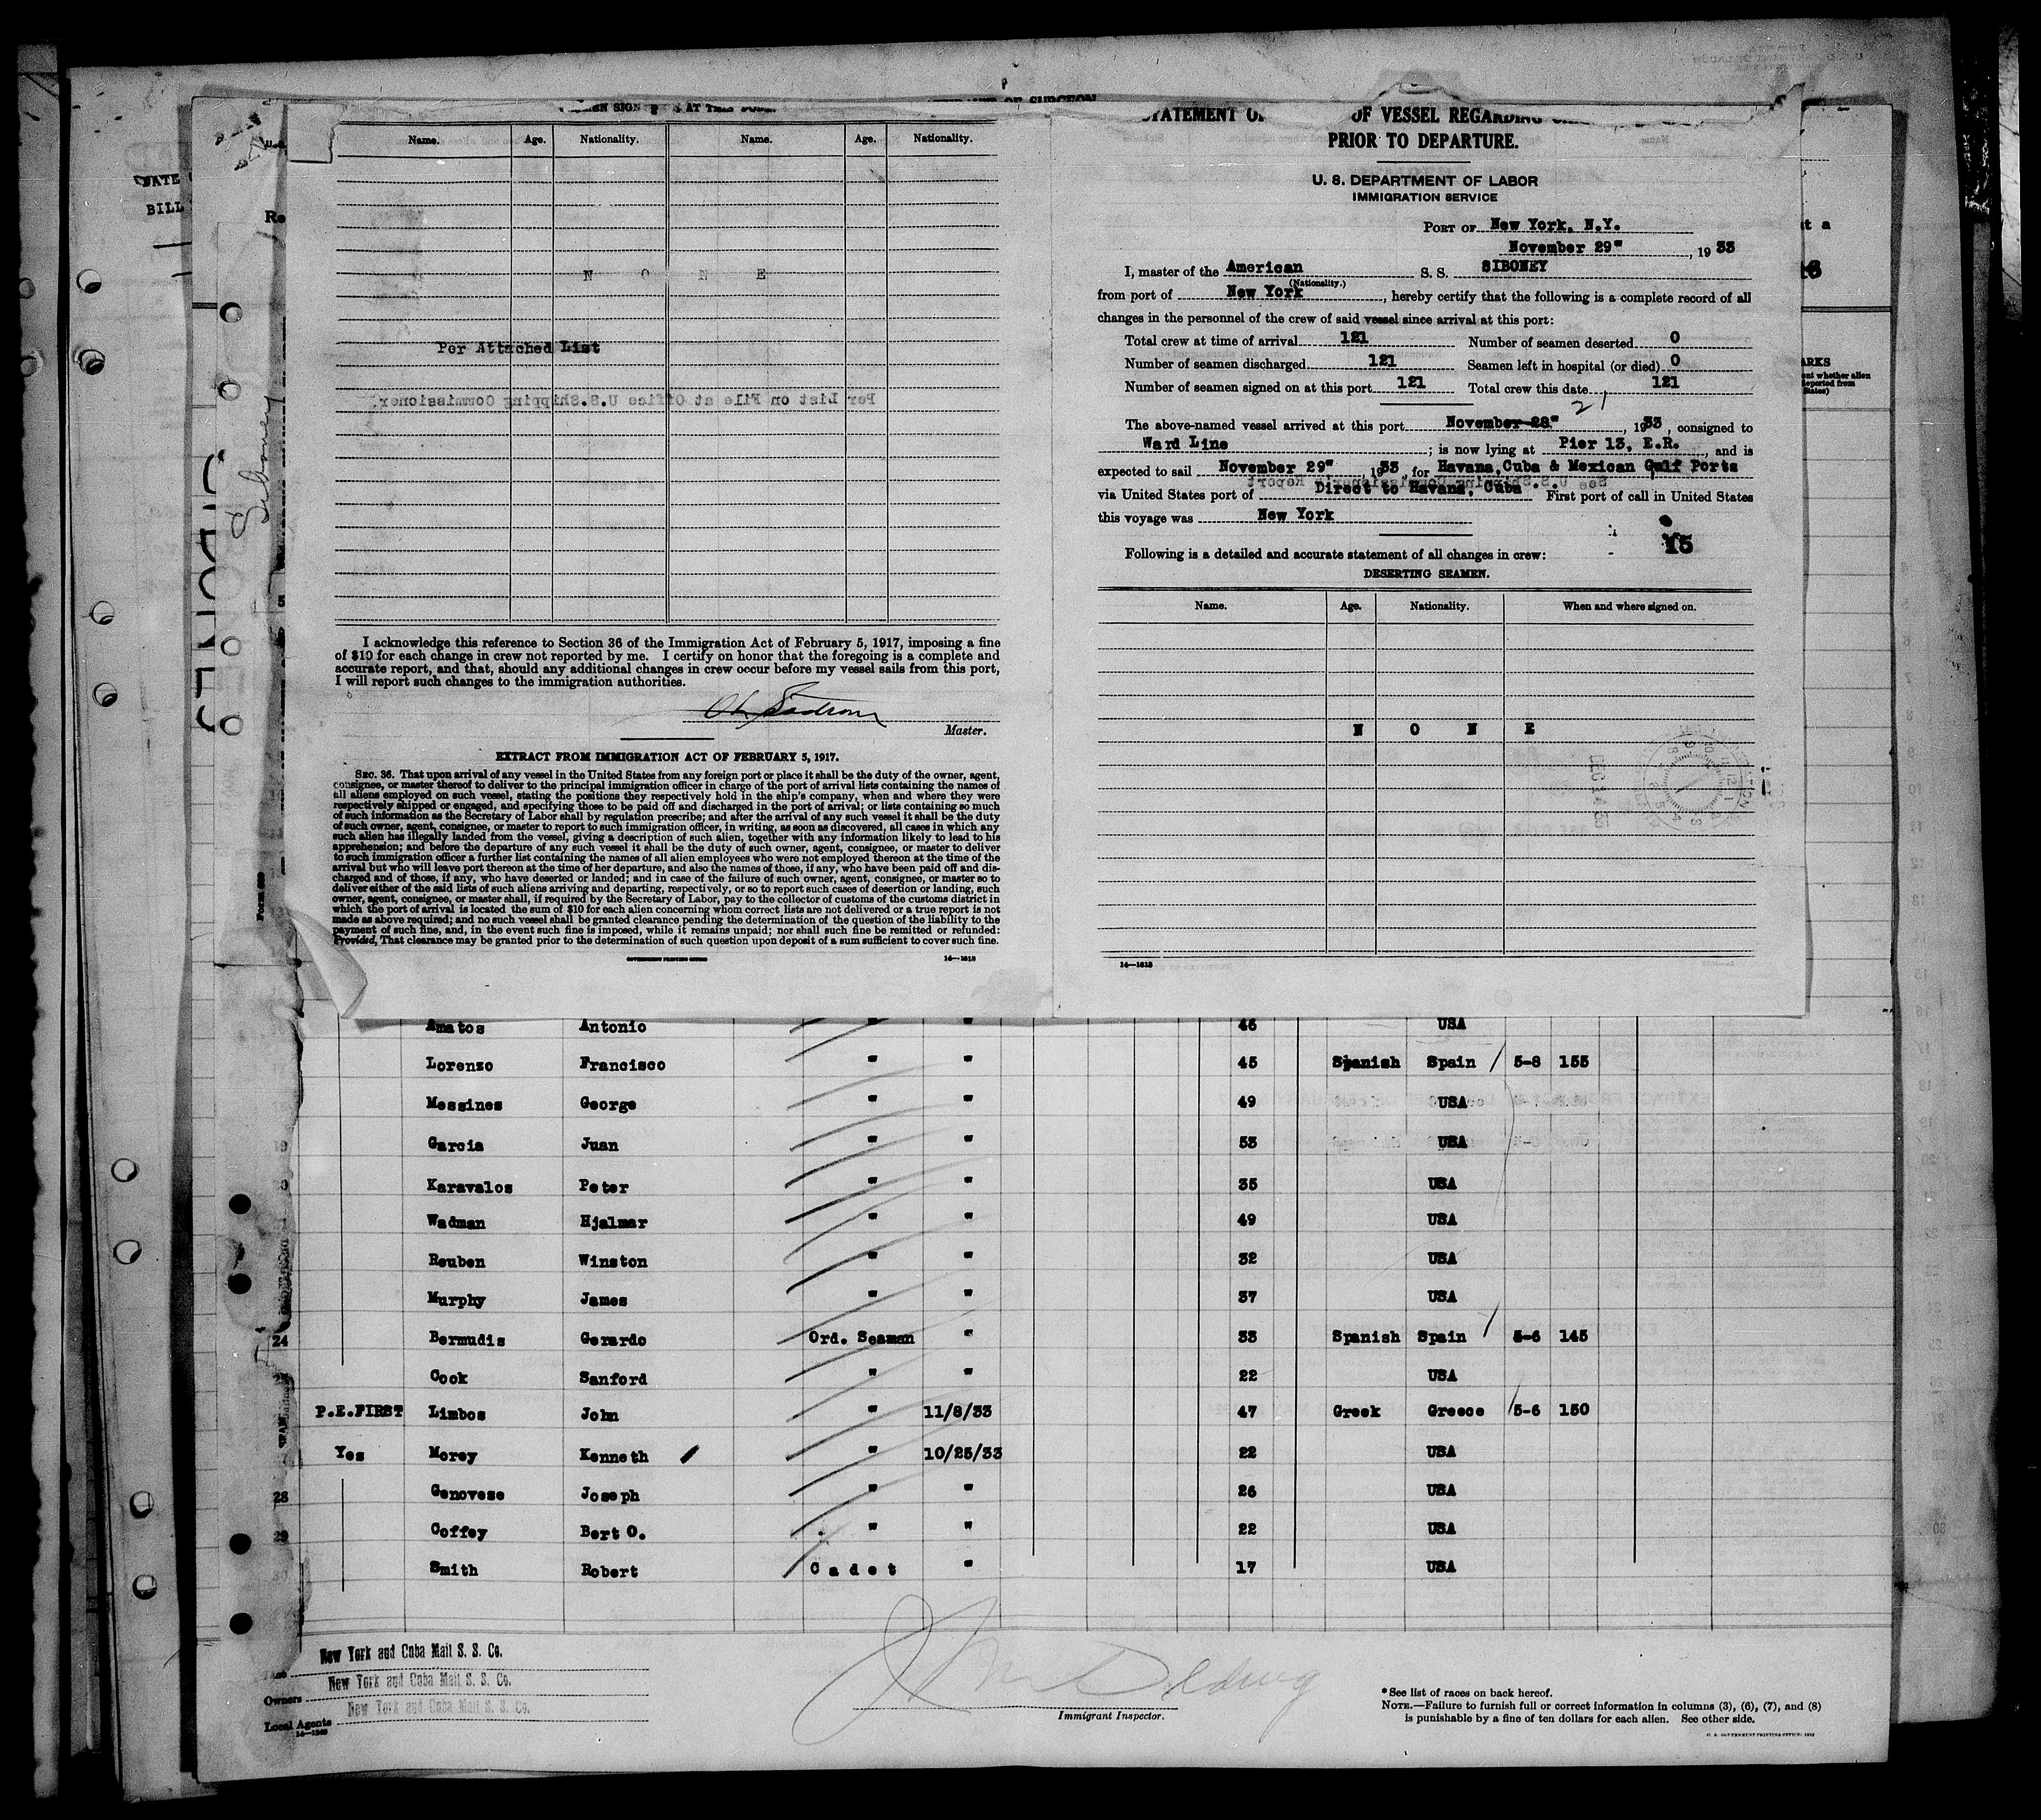 Name. Age. Nationality. Name. Age. Nationality.
N O N E
Per Attached List
Per List on File at Office U.S.Shipping Commissioner.
I acknowledge this reference to Section 36 of the Immigration Act of February 5, 1917, imposing a fine
of $10 for each change in crew not reported by me. I certify on honor that the foregoing is a complete and
accurate report, and that, should any additional changes in crew occur before my vessel sails from this port,
I will report such changes to the immigration authorities.
Master.
EXTRACT FROM IMMIGRATION ACT OF FEBRUARY 5, 1917.
SEC. 36. That upon arrival of any vessel in the United States from any foreign port or place it shall be the duty of the owner, agent,
consignee, or master thereof to deliver to the principal immigration officer in charge of the port of arrival lists containing the names of
all aliens employed on such vessel, stating the positions they respectively hold in the ship's company, when and where they were
respectively shipped or engaged, and specifying those to be paid off and discharged in the port of arrival; or lists containing so much
of such information as the Secretary of Labor shall by regulation prescribe; and after the arrival of any such vessel it shall be the duty
of such owner, agent, consignee, or master to report to such immigration officer, in writing, as soon as discovered, all cases in which any
such alien has illegally landed from the vessel, giving a description of such alien, together with any information likely to lead to his
apprehension; and before the departure of any such vessel it shall be the duty of such owner, agent, consignee, or master to deliver
to such immigration officer a further list containing the names of all alien employees who were not employed thereon at the time of the
arrival but who will leave port thereon at the time of her departure, and also the names of those, if any, who have been paid off and dis-
charged and of those, if any, who have deserted or landed; and in case of the failure of such owner, agent, consignee, or master so to
deliver either of the said lists of such aliens arriving and departing, respectively, or so to report such cases of desertion or landing, such
owner, agent, consignee, or master shall, if required by the Secretary of Labor, pay to the collector of customs of the customs district in
which the port of arrival is located the sum of $10 for each alien concerning whom correct lists are not delivered or a true report is not
made as above required; and no such vessel shall be granted clearance pending the determination of the question of the liability to the
payment of such fine, and, in the event such fine is imposed, while it remains unpaid; nor shall such fine be remitted or refunded:
Provided, That clearance may be granted prior to the determination of such question upon deposit of a sum sufficient to cover such fine.
GOVERNMENT PRINTING OFFICE 14—1613
OF VESSEL REGARDING
PRIOR TO DEPARTURE.
U. S. DEPARTMENT OF LABOR
IMMIGRATION SERVICE
PORT OF New York, N.Y.
November 29" , 19 33
I, master of the American S. S. SIBONEY
(Nationality.)
from port of New York , hereby certify that the following is a complete record of all
changes in the personnel of the crew of said vessel since arrival at this port:
Total crew at time of arrival 121 Number of seamen deserted 0
Number of seamen discharged 121 Seamen left in hospital (or died) 0
Number of seamen signed on at this port 121 Total crew this date 121
21
The above-named vessel arrived at this port November 28" , 1933 , consigned to
Ward Line ; is now lying at Pier 13, E.R. , and is
expected to sail November 29" , 1933 , for Havana,Cuba & Mexican Gulf Ports
via United States port of Direct to Havana, Cuba. First port of call in United States
this voyage was New York
15
Following is a detailed and accurate statement of all changes in crew:
DESERTING SEAMEN.
Name. Age. Nationality. When and where signed on.
N O N E
DEC 14 33
14—1613
Siboney
SIBONEY
Amatos Antonio " " 46 USA
Lorenzo Francisco " " 45 Spanish Spain 5-8 155
Messines George " " 49 USA
Garcia Juan " " 53 USA
Karavalos Peter " " 35 USA
Wadman Hjalmar " " 49 USA
Reuben Winston " " 32 USA
Murphy James " " 37 USA
24 Bermudis Gerardo Ord. Seaman " 33 Spanish Spain 5-6 145
Cook Sanford " " 22 USA
P.E.FIRST Limbos John " 11/8/33 47 Greek Greece 5-6 150
Yes Morey Kenneth " 10/25/33 22 USA
28 Genovese Joseph " " 26 USA
29 Coffey Bert O. " " 22 USA
Smith Robert Cadet " 17 USA
New York and Cuba Mail S. S. Co.
Owners New York and Cuba Mail S. S. Co.
Local Agents New York and Cuba Mail S. S. Co.
Immigrant Inspector.
*See list of races on back hereof.
NOTE.—Failure to furnish full or correct information in columns (3), (6), (7), and (8)
is punishable by a fine of ten dollars for each alien. See other side.
U. S. GOVERNMENT PRINTING OFFICE: 1932